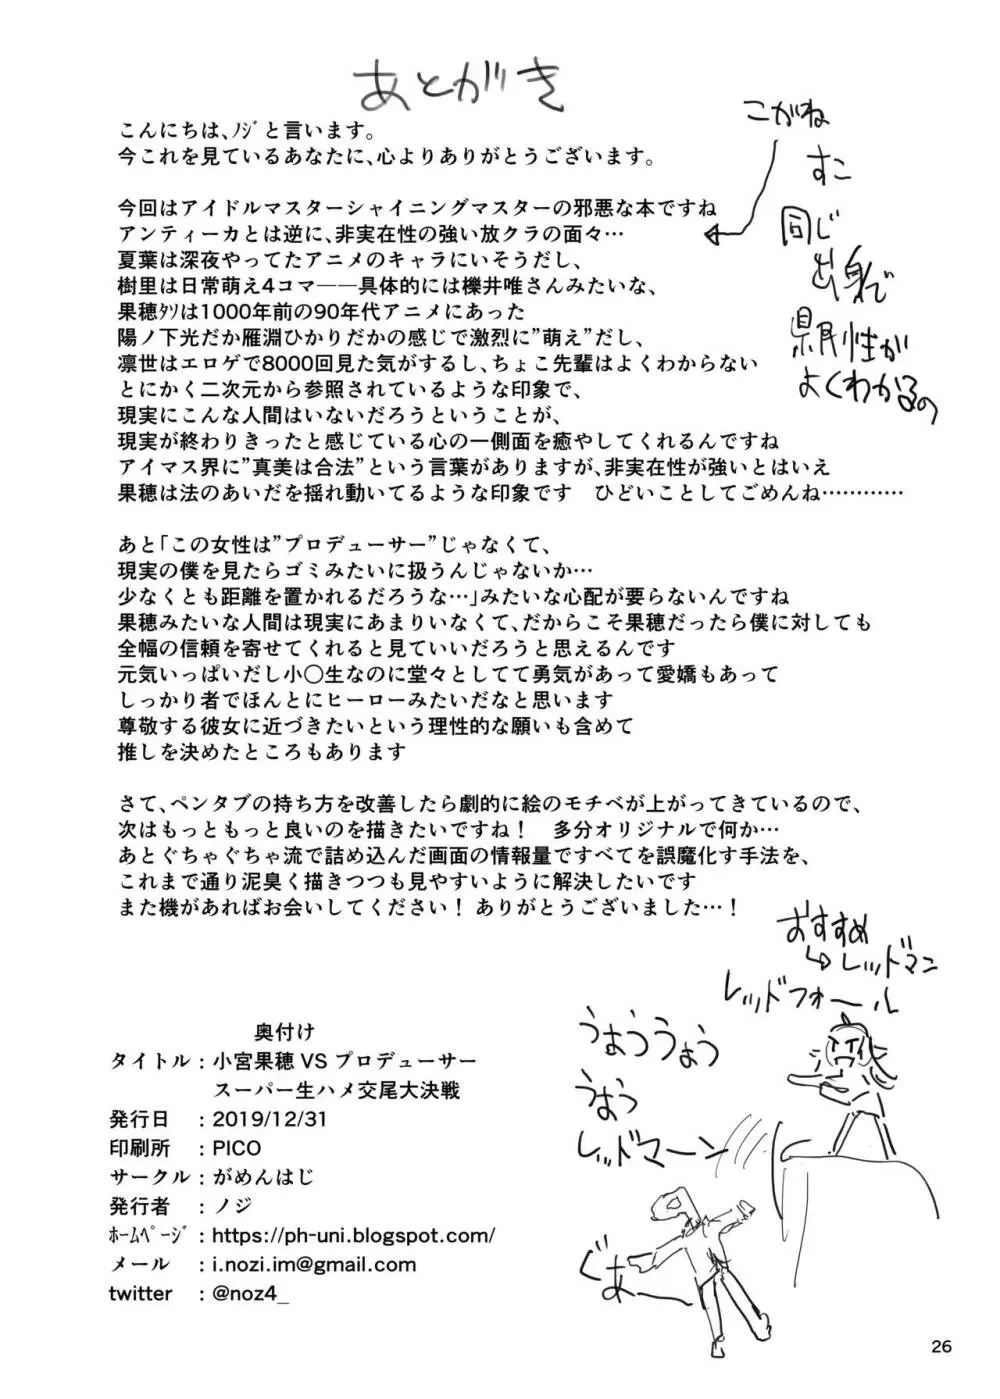 あとがき
こんにちは、ﾉｼﾞと言います。
今これを見ているあなたに、心よりありがとうございます。
今回はアイドルマスターシャイニングマスターの邪悪な本ですね
アンティーカとは逆に、非実在性の強い放クラの面々…
夏葉は深夜やってたアニメのキャラにいそうだし、
樹里は日常萌え4コマ――具体的には櫟井唯さんみたいな、
果穂ﾀｿは1000年前の90年代アニメにあった
陽ノ下光だか雁淵ひかりだかの感じで激烈に”萌え”だし、
凛世はエロゲで8000回見た気がするし、ちょこ先輩はよくわからない
とにかく二次元から参照されているような印象で、
現実にこんな人間はいないだろうということが、
現実が終わりきったと感じている心の一側面を癒やしてくれるんですね
アイマス界に”真美は合法”という言葉がありますが、非実在性が強いとはいえ
果穂は法のあいだを揺れ動いてるような印象です　ひどいことしてごめんね…………
こがね
すこ
同じ
出身で
県民性が
よくわかるの
あと「この女性は”プロデューサー”じゃなくて、
現実の僕を見たらゴミみたいに扱うんじゃないか…
少なくとも距離を置かれるだろうな…」みたいな心配が要らないんですね
果穂みたいな人間は現実にあまりいなくて、だからこそ果穂だったら僕に対しても
全幅の信頼を寄せてくれると見ていいだろうと思えるんです
元気いっぱいだし小〇生なのに堂々としてて勇気があって愛嬌もあって
しっかり者でほんとにヒーローみたいだなと思います
尊敬する彼女に近づきたいという理性的な願いも含めて
推しを決めたところもあります
さて、ペンタブの持ち方を改善したら劇的に絵のモチベが上がってきているので、
次はもっともっと良いのを描きたいですね！　多分オリジナルで何か…
あとぐちゃぐちゃ流で詰め込んだ画面の情報量ですべてを誤魔化す手法を、
これまで通り泥臭く描きつつも見やすいように解決したいです
また機があればお会いしてください！ ありがとうございました…！
おすすめ
↳レッドマン
レッドフォール
うおううおう
うおう
レッドマーン
ぐあー
奥付け
タイトル : 小宮果穂 VS プロデューサー
スーパー生ハメ交尾大決戦
発行日 : 2019/12/31
印刷所 : PICO
サークル : がめんはじ
発行者 : ノジ
ﾎｰﾑﾍﾟｰｼﾞ : https://ph-uni.blogspot.com/
メール : i.nozi.im@gmail.com
twitter : @noz4_
26